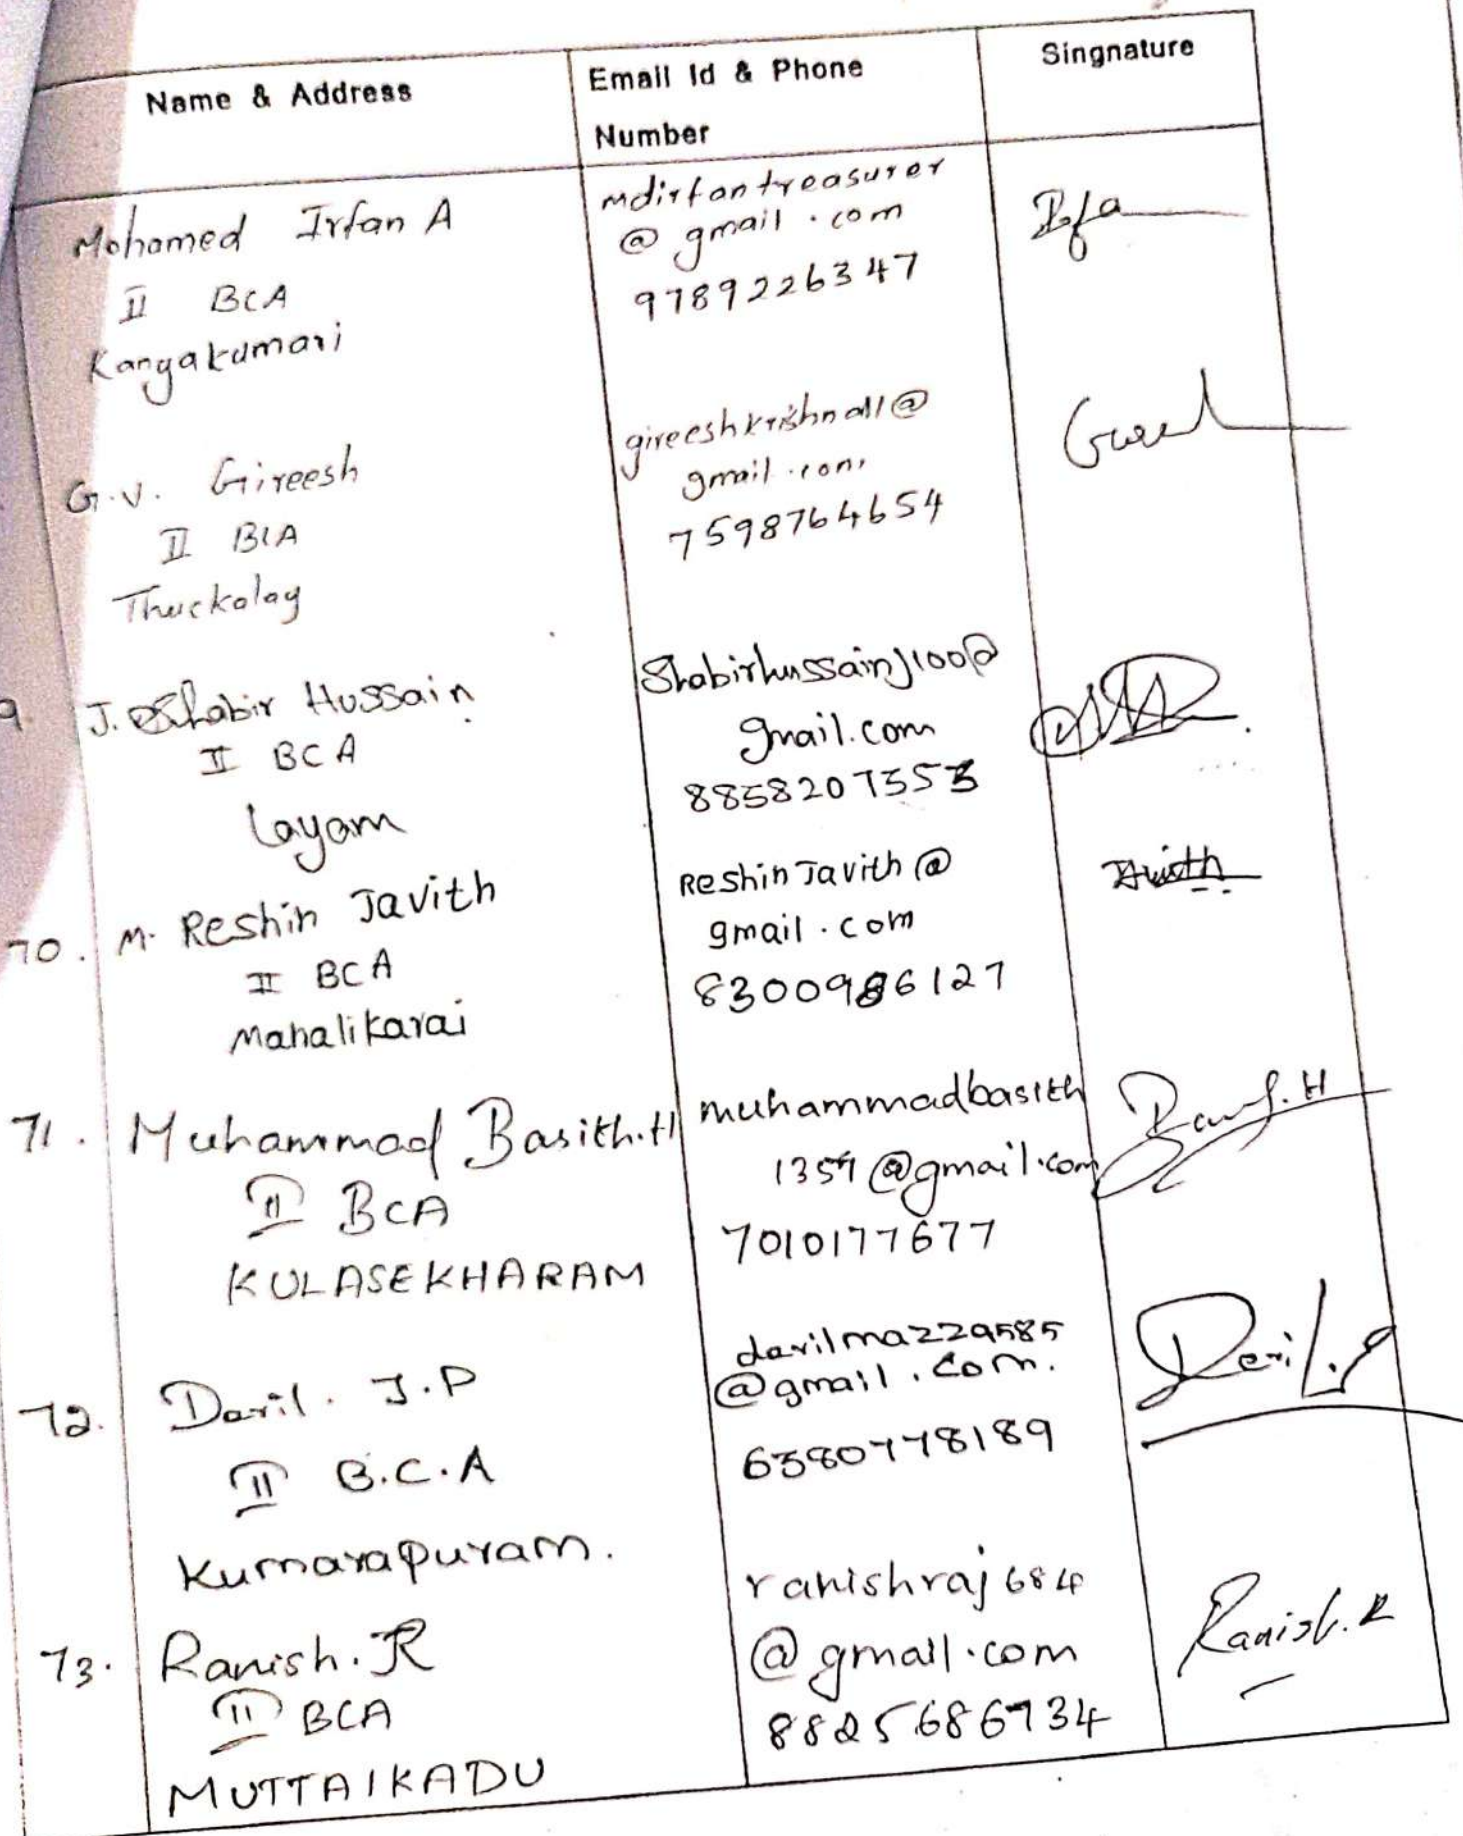 Name & Address
Email Id & Phone
Number
Singnature
Mohamed Irfan A
II BCA
Kanyakumari
mdirfantreasurer
@gmail.com
9789226347
Irfa
G.V. Gireesh
II BCA
Thuckalay
gmail.com
7598764654
9. J. Shabir Hussain
II BCA
Layam
Shabirhussainj100@
gmail.com
8858207553
70. M. Reshin Javith
II BCA
Mahalikarai
Reshin Javith @
gmail.com
8300986127
Javith
71. Muhammad Basith.H
II BCA
KULASEKHARAM
muhammadbasith
1359@gmail.com
7010177677
72. Daril. J.P
II B.C.A
Kumarapuram.
darilma229585
@gmail.com.
6380778189
Daril
73. Ranish.R
II BCA
MUTTAIKADU
ranishraj684
@gmail.com
8825686734
Ranish.R